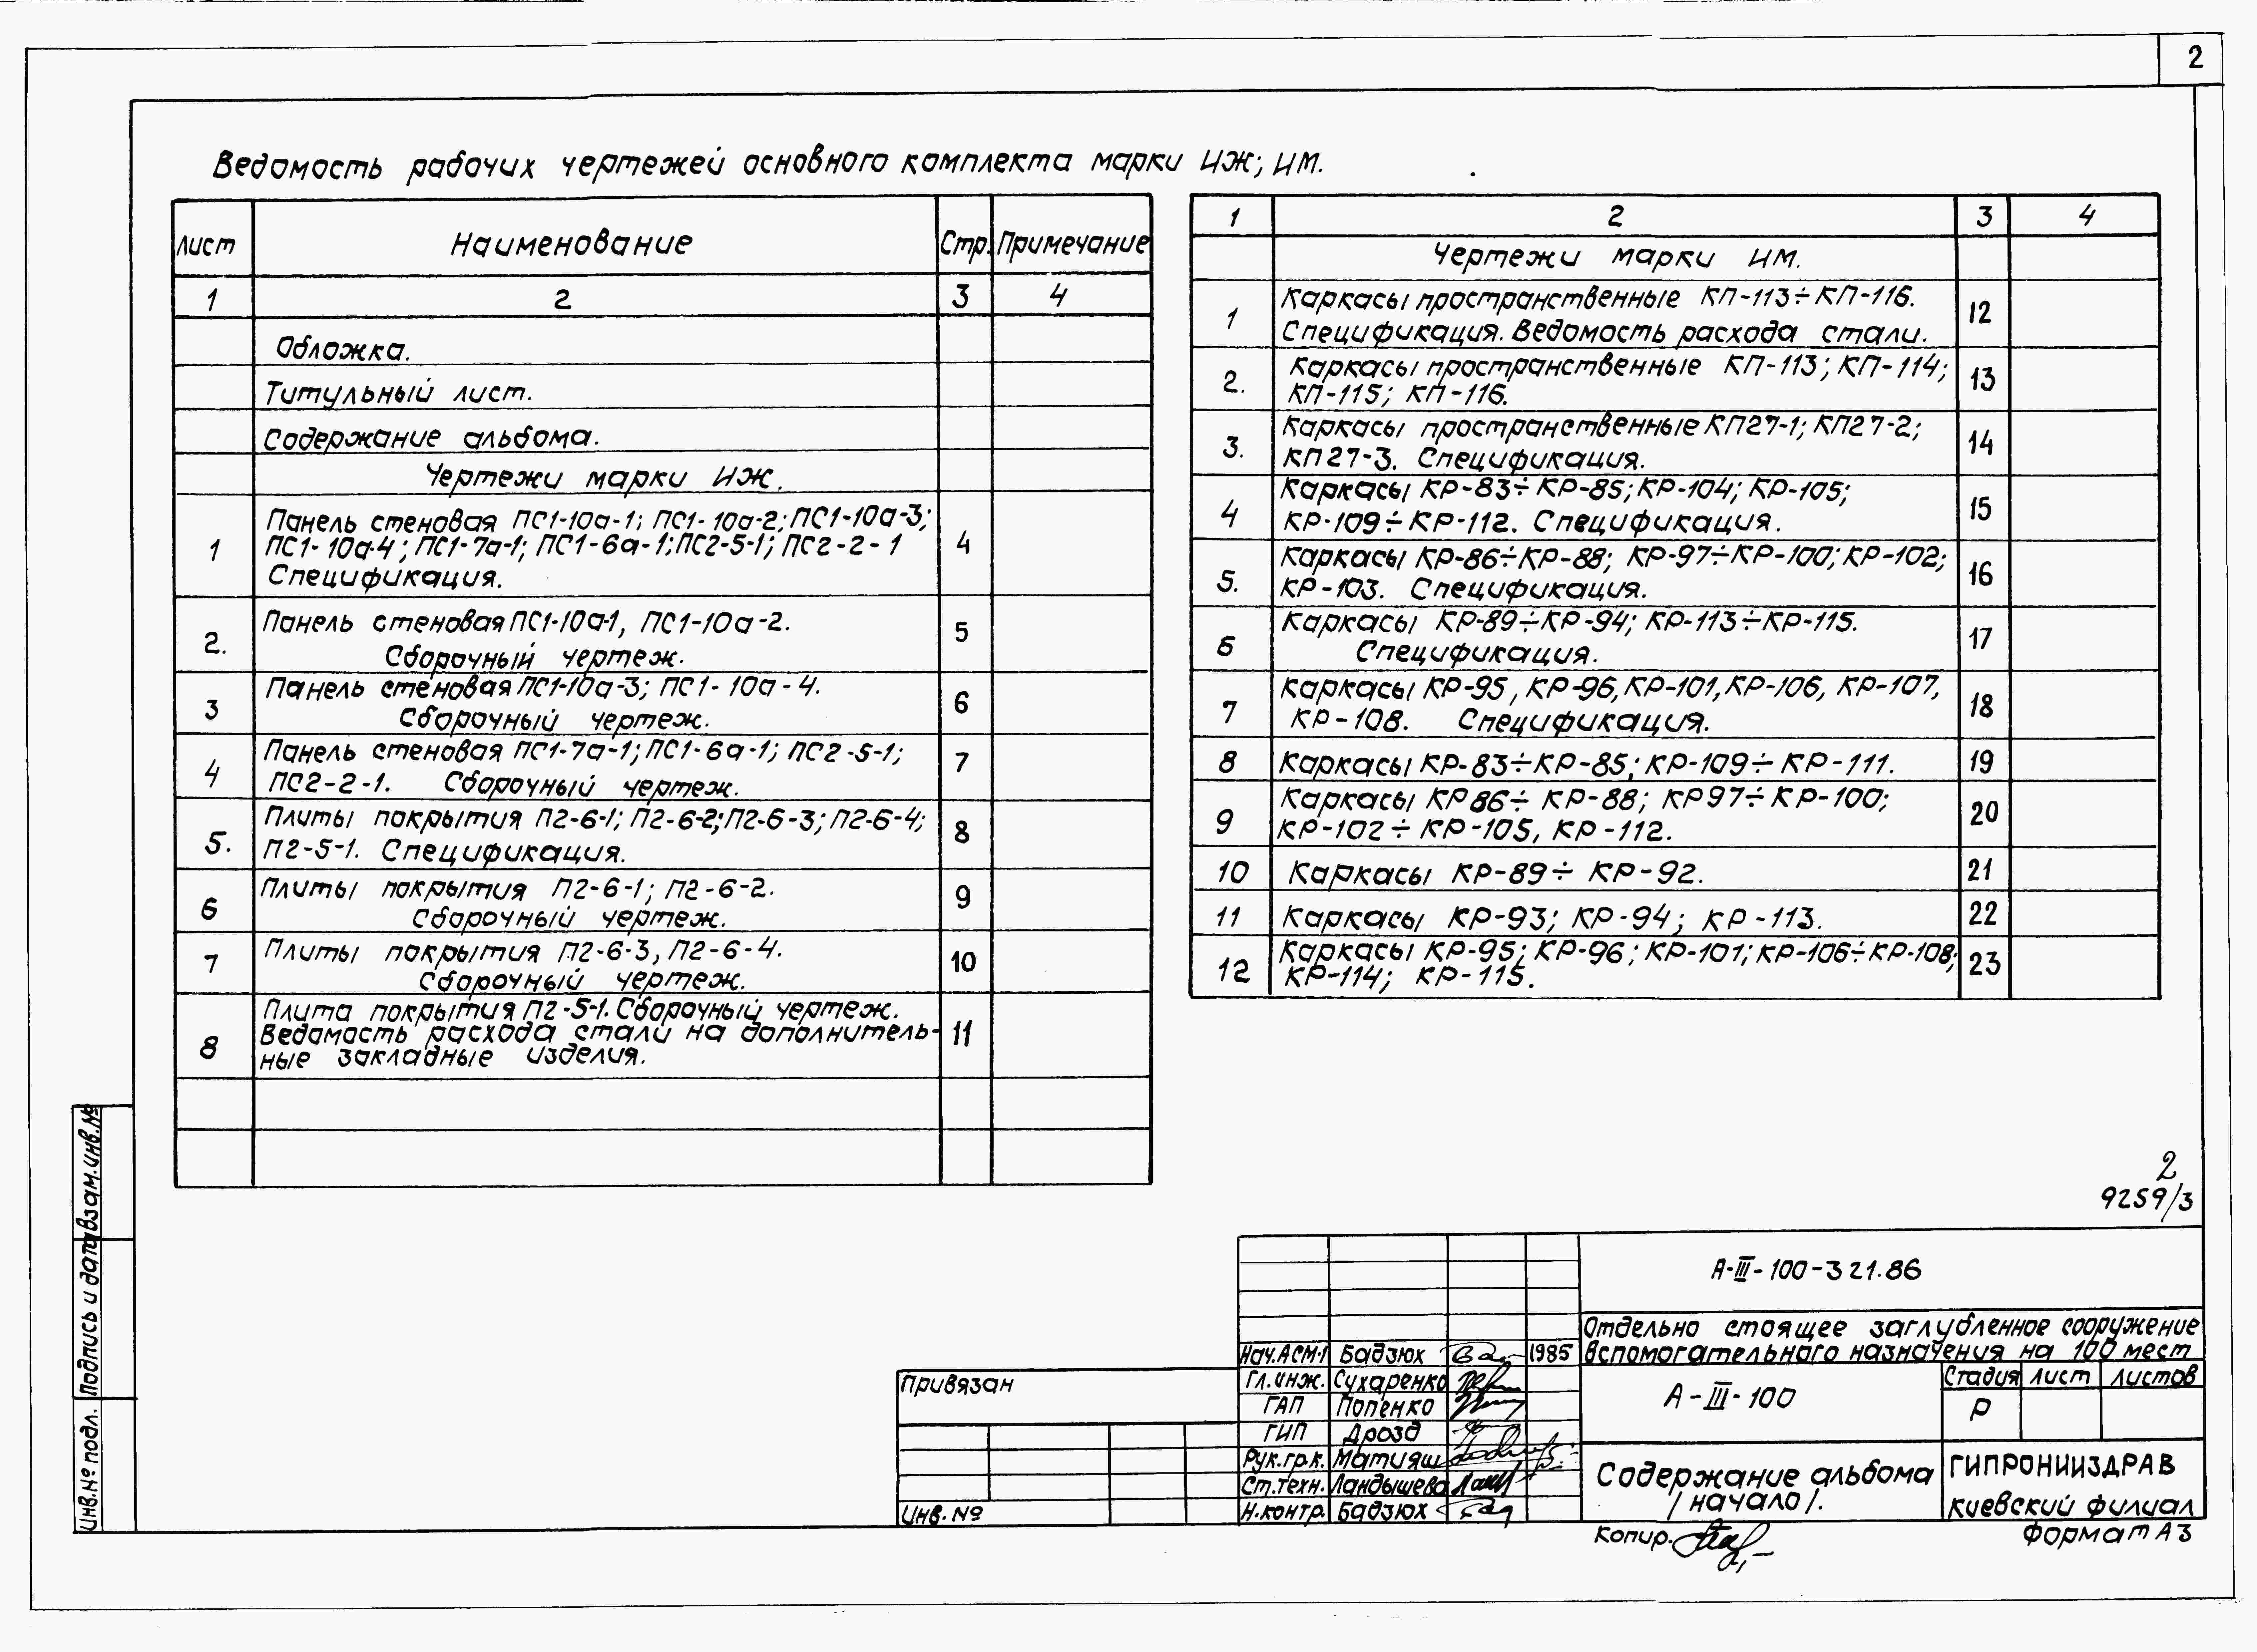 2
Ведомость рабочих чертежей основного комплекта марки ИЖ; ИМ.
Лист Наименование Стр. Примечание
1 2 3 4
Обложка.
Титульный лист.
Содержание альбома.
Чертежи марки ИЖ.
1 Панель стеновая ПС1-10а-1; ПС1-10а-2; ПС1-10а-3; 4
ПС1-10а-4; ПС1-7а-1; ПС1-6а-1; ПС2-5-1; ПС2-2-1
Спецификация.
2. Панель стеновая ПС1-10а-1, ПС1-10а-2. 5
Сборочный чертеж.
3 Панель стеновая ПС1-10а-3; ПС1-10а-4. 6
Сборочный чертеж.
4 Панель стеновая ПС1-7а-1; ПС1-6а-1; ПС2-5-1; 7
ПС2-2-1. Сборочный чертеж.
5. Плиты покрытия П2-6-1; П2-6-2; П2-6-3; П2-6-4; 8
П2-5-1. Спецификация.
6 Плиты покрытия П2-6-1; П2-6-2. 9
Сборочный чертеж.
7 Плиты покрытия П2-6-3, П2-6-4. 10
Сборочный чертеж.
8 Плита покрытия П2-5-1. Сборочный чертеж. 11
Ведомость расхода стали на дополнитель-
ные закладные изделия.
1 2 3 4
Чертежи марки ИМ.
1 Каркасы пространственные КП-113÷КП-116. 12
Спецификация. Ведомость расхода стали.
2. Каркасы пространственные КП-113; КП-114; 13
КП-115; КП-116.
3. Каркасы пространственные КП27-1; КП27-2; 14
КП27-3. Спецификация.
4 Каркасы КР-83÷КР-85; КР-104; КР-105; 15
КР-109÷КР-112. Спецификация.
5. Каркасы КР-86÷КР-88; КР-97÷КР-100; КР-102; 16
КР-103. Спецификация.
6 Каркасы КР-89÷КР-94; КР-113÷КР-115. 17
Спецификация.
7 Каркасы КР-95, КР-96, КР-101, КР-106, КР-107, 18
КР-108. Спецификация.
8 Каркасы КР-83÷КР-85; КР-109÷КР-111. 19
9 Каркасы КР86÷КР-88; КР97÷КР-100; 20
КР-102÷КР-105, КР-112.
10 Каркасы КР-89÷КР-92. 21
11 Каркасы КР-93; КР-94; КР-113. 22
12 Каркасы КР-95; КР-96; КР-101; КР-106÷КР-108; 23
КР-114; КР-115.
2
9259/3
А-III-100-321.86
Отдельно стоящее заглубленное сооружение
вспомогательного назначения на 100 мест
Нач.АСМ-1 Бадзюх 1985
Гл.инж. Сухаренко
ГАП Попенко
ГИП Дрозд
Рук.гр.к. Матияш
Ст.техн. Ландышева
Н.контр. Бадзюх
А-III-100
Стадия Лист Листов
Р
Содержание альбома
/начало/.
ГИПРОНИИЗДРАВ
Киевский филиал
Привязан
Инв. №
Копир.
Формат А3
Взам.инв.№
Подпись и дата
Инв.№ подл.